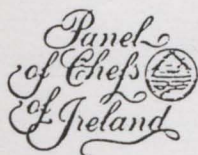 Panel
of Chefs
of Ireland